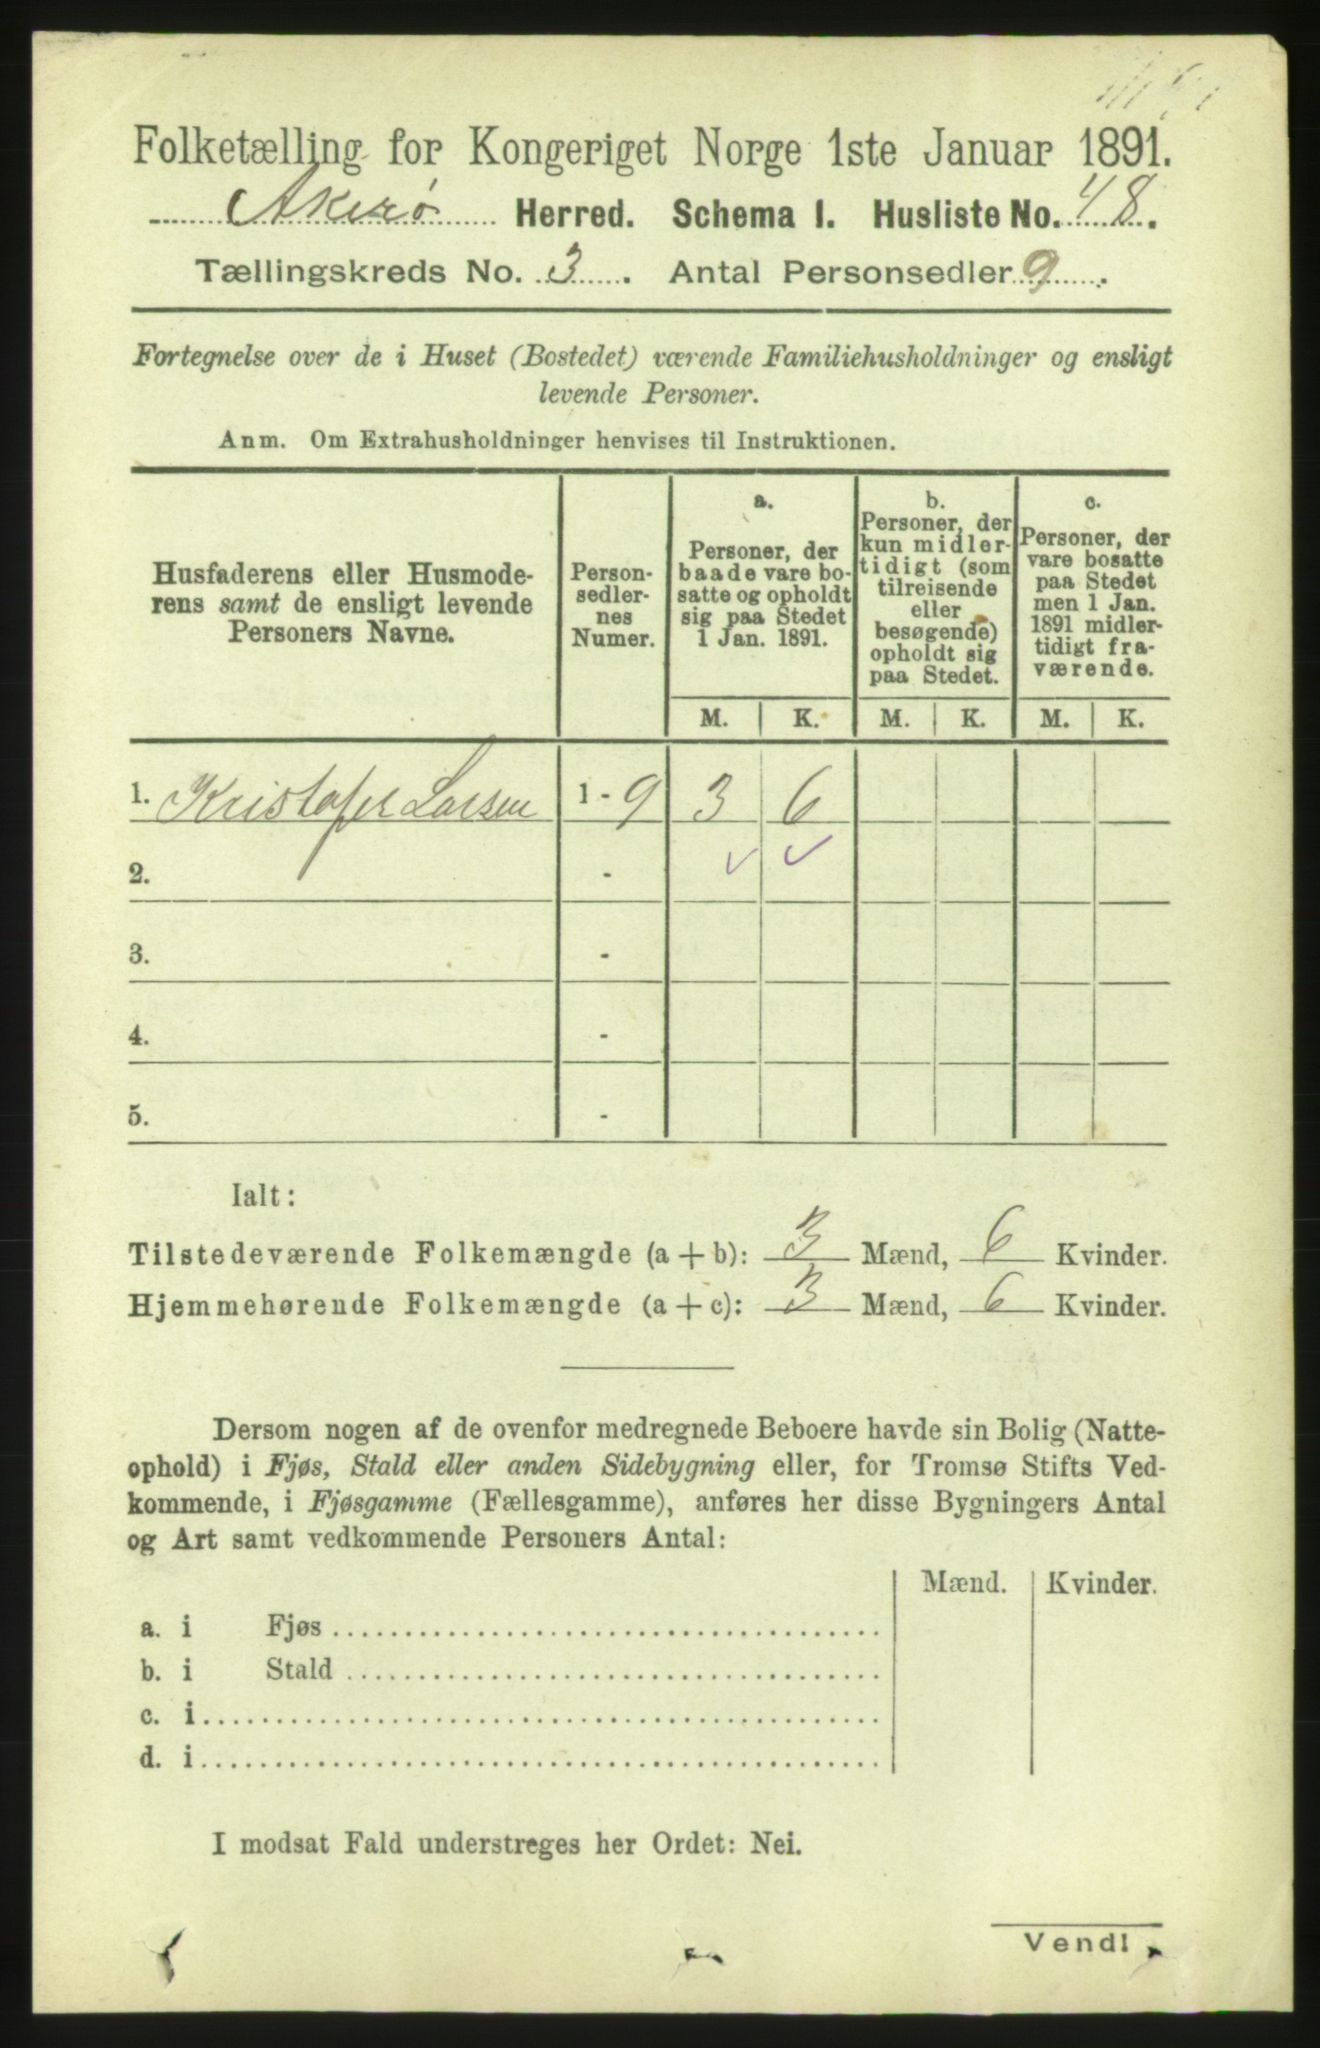 Folketælling for Kongeriget Norge 1ste Januar 1891.
Akerø Herred. Schema I. Husliste No. 48.
Tællingskreds No. 3. Antal Personsedler 9.
Fortegnelse over de i Huset (Bostedet) værende Familiehusholdninger og ensligt
levende Personer.
Anm. Om Extrahusholdninger henvises til Instruktionen.
Husfaderens eller Husmode-
rens samt de ensligt levende
Personers Navne.
Person-
sedler-
nes
Numer.
a.
Personer, der
baade vare bo-
satte og opholdt
sig paa Stedet
1 Jan. 1891.
b.
Personer, der
kun midler-
tidigt (som
tilreisende
eller
besøgende)
opholdt sig
paa Stedet.
c.
Personer, der
vare bosatte
paa Stedet
men 1 Jan.
1891 midler-
tidigt fra-
værende.
M. K. M. K. M. K.
1. Kristofer Larsen 1 - 9 3 6
2. -
3. -
4. -
5. -
Ialt:
Tilstedeværende Folkemængde (a + b): 3 Mænd, 6 Kvinder.
Hjemmehørende Folkemængde (a + c): 3 Mænd, 6 Kvinder.
Dersom nogen af de ovenfor medregnede Beboere havde sin Bolig (Natte-
ophold) i Fjøs, Stald eller anden Sidebygning eller, for Tromsø Stifts Ved-
kommende, i Fjøsgamme (Fællesgamme), anføres her disse Bygningers Antal
og Art samt vedkommende Personers Antal:
Mænd. Kvinder.
a. i Fjøs
b. i Stald
c. i
d. i
I modsat Fald understreges her Ordet: Nei.
Vend!